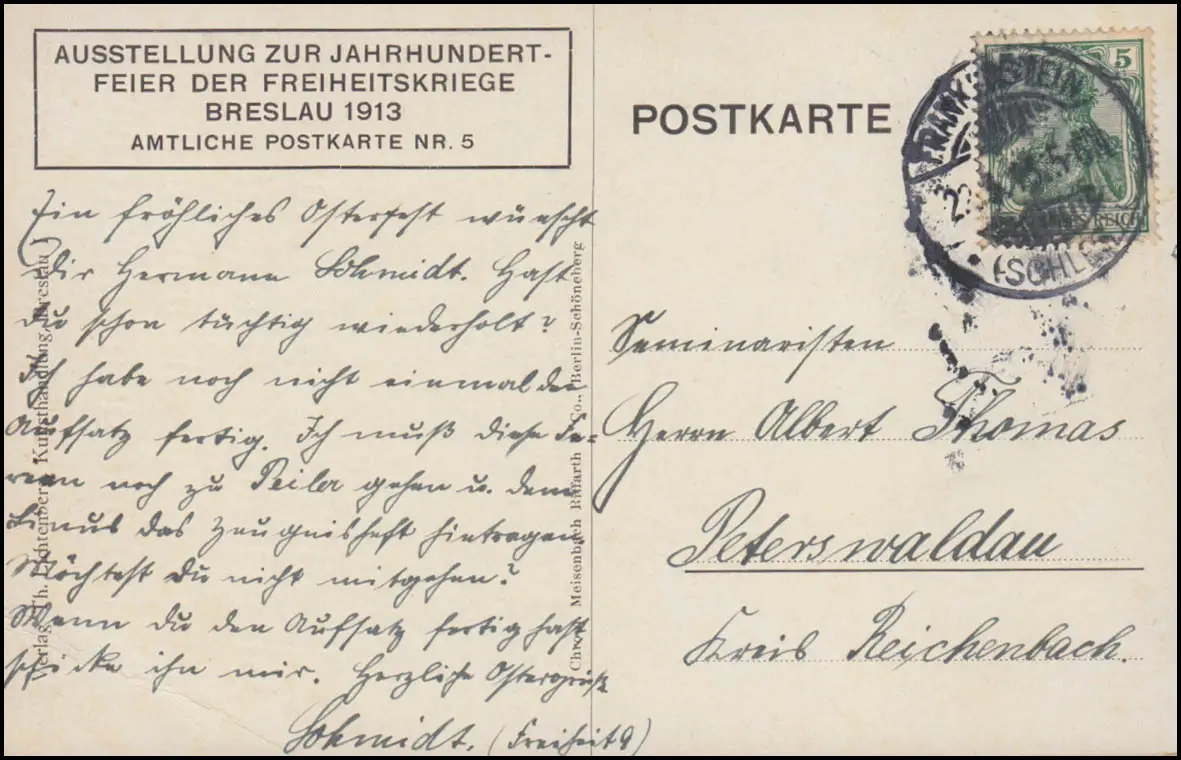 AUSSTELLUNG ZUR JAHRHUNDERT-
FEIER DER FREIHEITSKRIEGE
BRESLAU 1913
AMTLICHE POSTKARTE NR. 5
Ein fröhliches Osterfest wünscht
Dir Hermann Schmidt. Hast
Du schon tüchtig wiederholt?
Ich habe noch nicht einmal den
Aufsatz fertig. Ich muß diese Fe-
rien noch zu Peiler gehen u. dem
das Zeugnisheft hintragen
Möchtest Du nicht mitgehen?
Wenn Du den Aufsatz fertig hast
schicke ihn mir. Herzliche Ostergrüße
Schmidt. (Freiheit 9)
Verlag Th. Lichtenberg Kunsthandlung, Breslau
Meisenbach Riffarth Co., Berlin-Schöneberg
POSTKARTE
5
REICH
FRANKENSTEIN
(SCHLES
Seminaristen
Herrn Albert Thomas
Peterswaldau
Kreis Reichenbach.